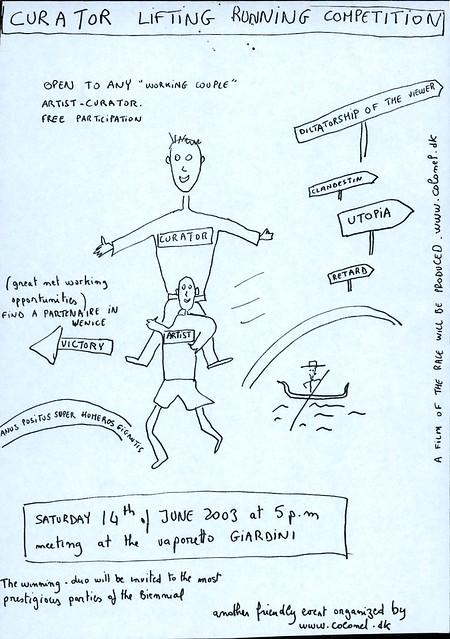 CURATOR LIFTING RUNNING COMPETITION
OPEN TO ANY "WORKING COUPLE"
ARTIST-CURATOR.
FREE PARTICIPATION
DICTATORSHIP OF THE VIEWER
CLANDESTIN
UTOPIA
RETARD
CURATOR
ARTIST
(great net working
opportunities)
FIND A PARTENAIRE IN
WENICE
VICTORY
ANUS POSITUS SUPER HOMEROS GIGANTIS
A FILM OF THE RACE WILL BE PRODUCED. www.colonel.dk
SATURDAY 14th of JUNE 2003 at 5 p.m
meeting at the vaporetto GIARDINI
The winning-duo will be invited to the most
prestigious parties of the Biennial
another friendly event organized by
www.colonel.dk